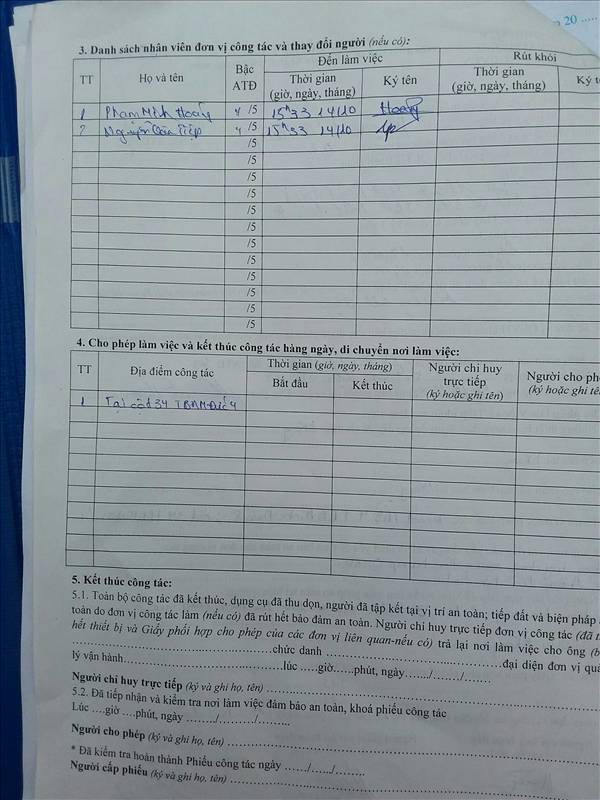 20 .....
3. Danh sách nhân viên đơn vị công tác và thay đổi người (nếu có):
TT Họ và tên Bậc ATĐ Đến làm việc Rút khỏi
Thời gian (giờ, ngày, tháng) Ký tên Thời gian (giờ, ngày, tháng) Ký t
1 Phạm Minh Hoàng 4 /5 15h33 14/10 Hoàng
2 Nguyễn Tiếp 4 /5 15h33 14/10
/5
/5
/5
/5
/5
/5
/5
/5
/5
/5
/5
/5
4. Cho phép làm việc và kết thúc công tác hàng ngày, di chuyển nơi làm việc:
TT Địa điểm công tác Thời gian (giờ, ngày, tháng) Người chỉ huy trực tiếp (ký hoặc ghi tên) Người cho ph (ký hoặc ghi tê
Bắt đầu Kết thúc
1 Tại cột 34
5. Kết thúc công tác:
5.1. Toàn bộ công tác đã kết thúc, dụng cụ đã thu dọn, người đã tập kết tại vị trí an toàn; tiếp đất và biện pháp
toàn do đơn vị công tác làm (nếu có) đã rút hết bảo đảm an toàn. Người chỉ huy trực tiếp đơn vị công tác (đã t
hết thiết bị và Giấy phối hợp cho phép của các đơn vị liên quan-nếu có) trả lại nơi làm việc cho ông (b
........................................chức danh ........................................đại diện đơn vị quả
lý vận hành........................................lúc .....giờ......phút, ngày......./......./........
Người chỉ huy trực tiếp (ký và ghi họ, tên) ........................................
5.2. Đã tiếp nhận và kiểm tra nơi làm việc đảm bảo an toàn, khoá phiếu công tác
Lúc ....giờ ....phút, ngày ......../........../.........
Người cho phép (ký và ghi họ, tên) ........................................
* Đã kiểm tra hoàn thành Phiếu công tác ngày ....../....../........
Người cấp phiếu (ký và ghi họ, tên) ........................................